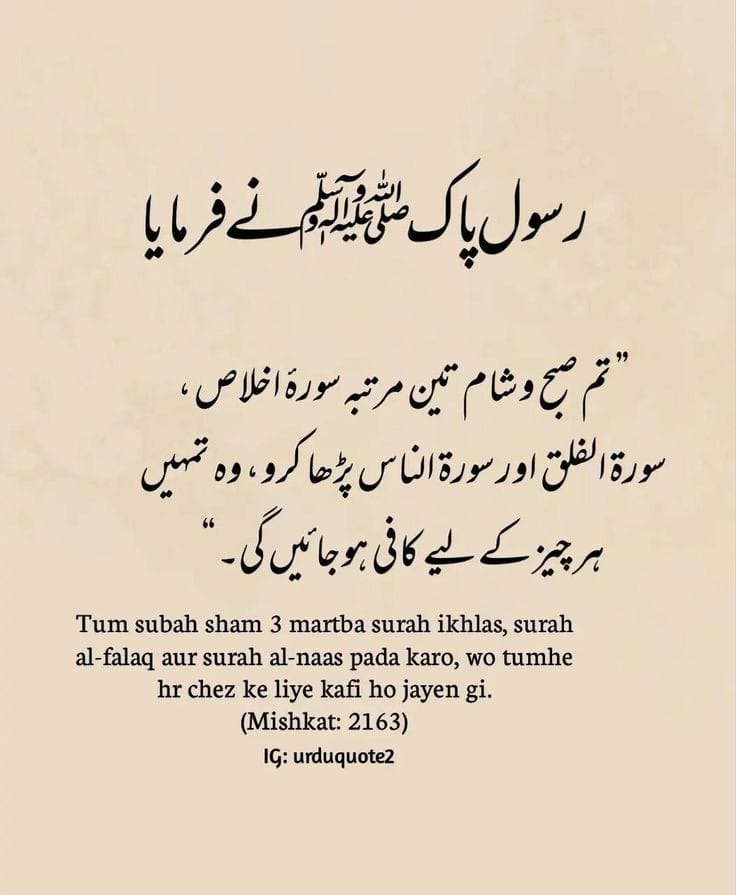 رسول پاک ﷺ نے فرمایا
”تم صبح و شام تین مرتبہ سورۂ اخلاص ،
سورۃ الفلق اور سورۃ الناس پڑھا کرو، وہ تمہیں
ہر چیز کے لیے کافی ہو جائیں گی۔“
Tum subah sham 3 martba surah ikhlas, surah
al-falaq aur surah al-naas pada karo, wo tumhe
hr chez ke liye kafi ho jayen gi.
(Mishkat: 2163)
IG: urduquote2